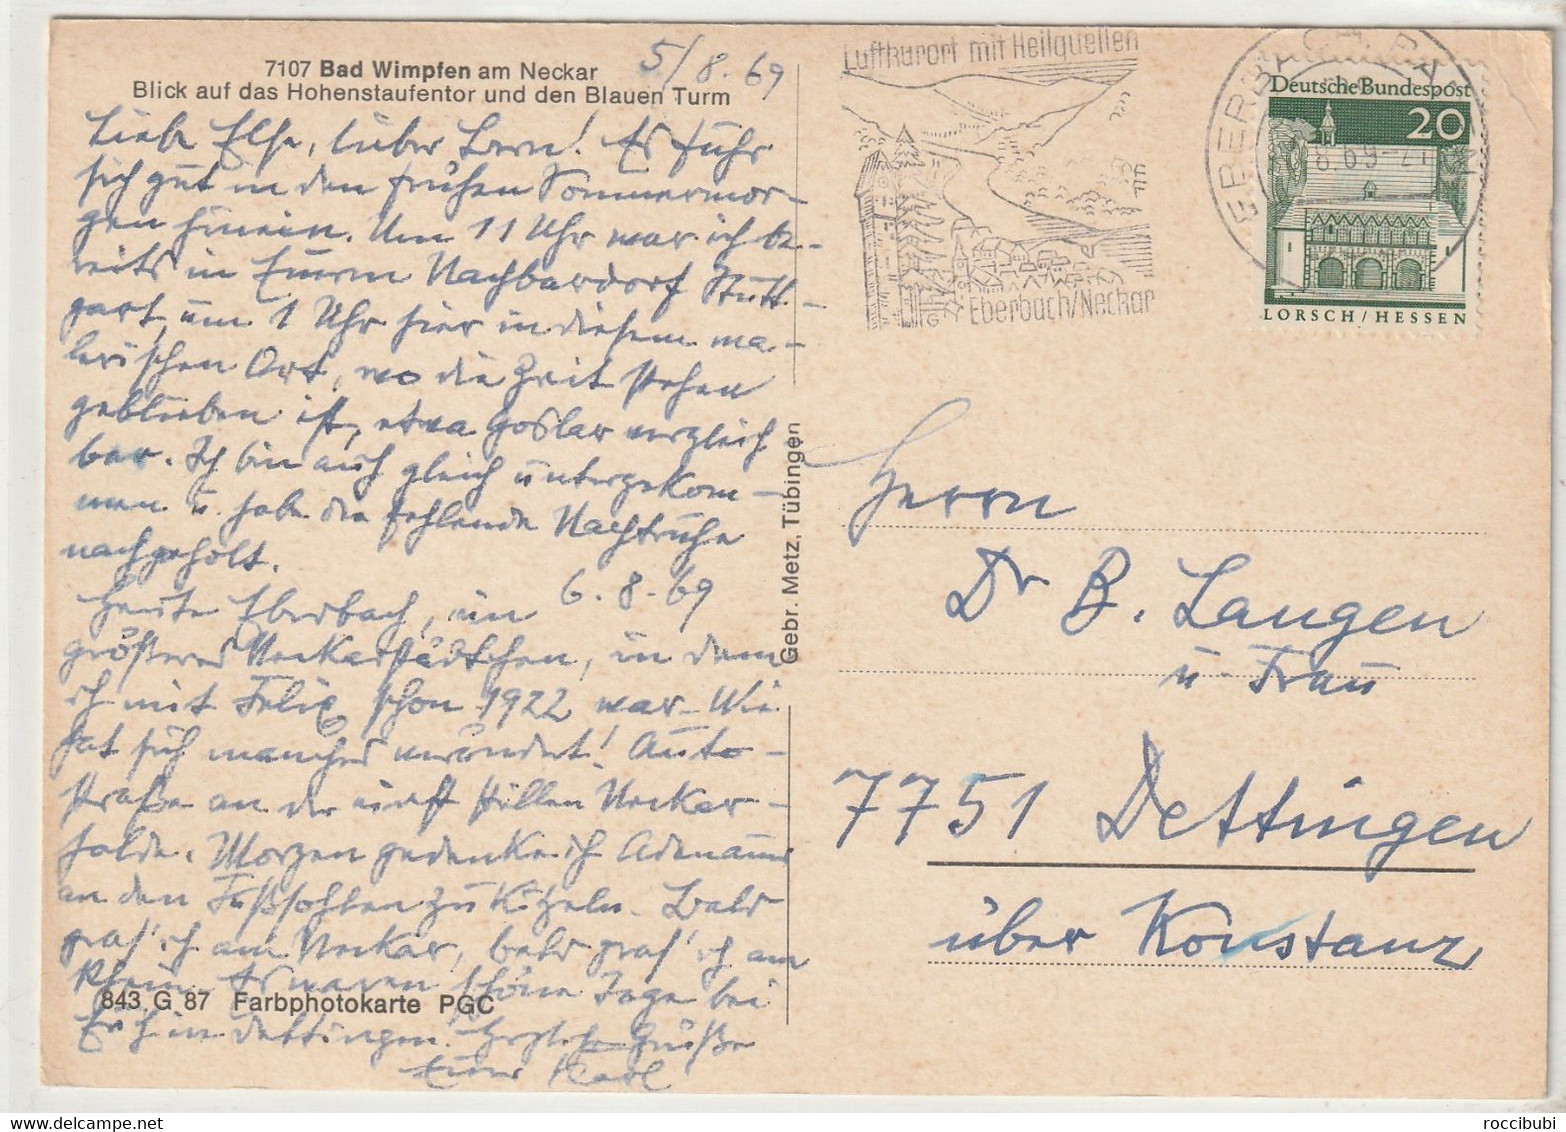 7107 Bad Wimpfen am Neckar
Blick auf das Hohenstaufentor und den Blauen Turm
5/8.69
Liebe Else, lieber Bern! Es fuhr
sich gut in den frühen Sommermor-
gen hinein. Um 11 Uhr war ich be-
reits in Eurem Nachbardorf Stutt-
gart, um 1 Uhr hier in diesem ma-
lerischen Ort, wo die Zeit stehen
geblieben ist, etwa Goslar vergleich
bar. Ich bin auch gleich untergekom-
men u. habe die fehlende Nachtruhe
nachgeholt.
6.8.69
Heute Eberbach, ein
größeres Neckarstädtchen, in dem
ich mit Felix schon 1922 war. Wie
hat sich manches verändert! Auto-
straße an der einst stillen Neckar-
halde. Morgen gedenke ich Adenauer
an den Fußsohlen zu kitzeln. Bald
gras' ich am Neckar, bald gras' ich am
Rhein. Es waren schöne Tage bei
Euch in Dettingen! Herzliche Grüße
Euer Karl
843 G 87 Farbphotokarte PGC
Gebr. Metz, Tübingen
Luftkurort mit Heilquellen
Eberbach/Neckar
EBERBACH
8.69-21
Deutsche Bundespost
20
LORSCH/HESSEN
Herrn
Dr B. Langen
u. Frau
7751 Dettingen
über Konstanz
roccibubi